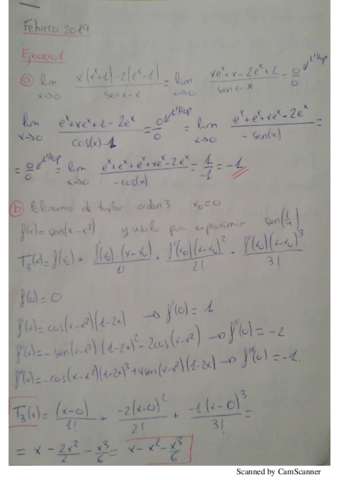 Febrero 2019
Ejercicio 1
a) lim x→0 x(eˣ+1)-2(eˣ-1) / sen x - x = lim x→0 xeˣ+x-2eˣ+2 / sen x - x = 0/0 L'Hop
lim x→0 eˣ+xeˣ+1-2eˣ / cos(x)-1 = 0/0 L'Hop = lim x→0 eˣ+eˣ+xeˣ-2eˣ / -sen(x) =
= 0/0 L'Hop = lim x→0 eˣ+eˣ+eˣ+xeˣ-2eˣ / -cos(x) = 1/-1 = -1
b) Polinomio de taylor orden 3 x₀=0
f(x)= sen(x-x²) y usarlo para aproximar sen(1/4)
T₃(x)= f(x₀) + f'(x₀)(x-x₀) / 1! + f''(x₀)(x-x₀)² / 2! + f'''(x₀)(x-x₀)³ / 3!
f(0)=0
f'(x)= cos(x-x²)(1-2x) → f'(0)= 1
f''(x)= -sen(x-x²)(1-2x)²-2cos(x-x²) → f''(0)= -2
f'''(x)= -cos(x-x²)(1-2x)³+4sen(x-x²)(1-2x) → f'''(0)= -1
T₃(x)= (x-0) / 1! + -2(x-0)² / 2! + -1(x-0)³ / 3! =
= x - 2x²/2 - x³/6 = x-x²-x³/6
Scanned by CamScanner